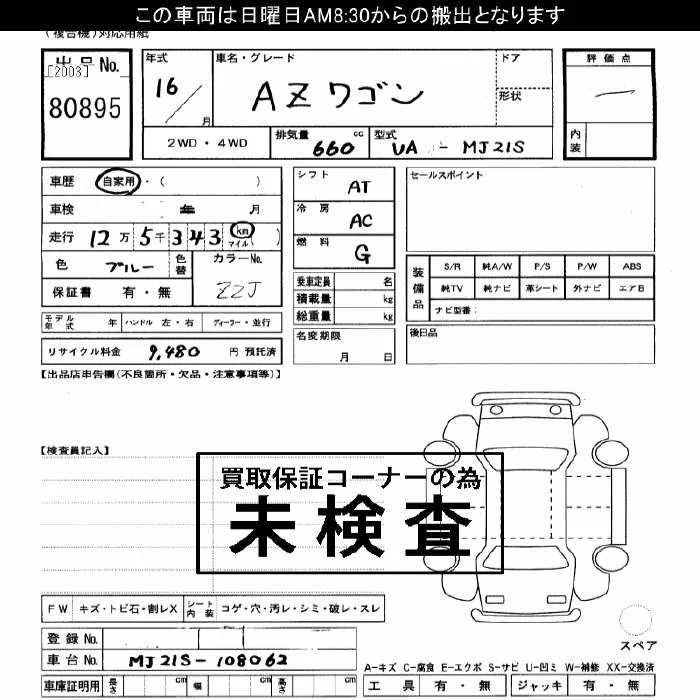 この車両は日曜日AM8:30からの搬出となります
(複合機)対応用紙
出品No.
[2003]
80895
年式 16 / 月
車名・グレード AZワゴン
ドア
形状
評価点 一
内装
2WD・4WD
排気量 660 cc
型式 UA - MJ21S
車歴 自家用・( )
車検 年 月
走行 12万5千343 km マイル ( )
色 ブルー
色替
カラーNo. ZZJ
保証書 有・無
シフト AT
冷房 AC
燃料 G
乗車定員 名
積載量 kg
総重量 kg
セールスポイント
装備品
S/R 純A/W P/S P/W ABS
純TV 純ナビ 革シート 外ナビ エアB
ナビ型番:
モデル年式 年 ハンドル 左・右 ディーラー・並行
名変期限 月 日
後日品
リサイクル料金 9,480 円 預託済
【出品店申告欄(不良箇所・欠品・注意事項等)】
【検査員記入】
買取保証コーナーの為
未検査
FW キズ・トビ石・割レX シート内装 コゲ・穴・汚レ・シミ・破レ・スレ
登録No.
車台No. MJ21S-108062
車庫証明用 長さ cm 幅 cm 高さ cm
スペア
A-キズ C-腐食 E-エクボ S-サビ U-凹ミ W-補修 XX-交換済
工具 有・無 ジャッキ 有・無